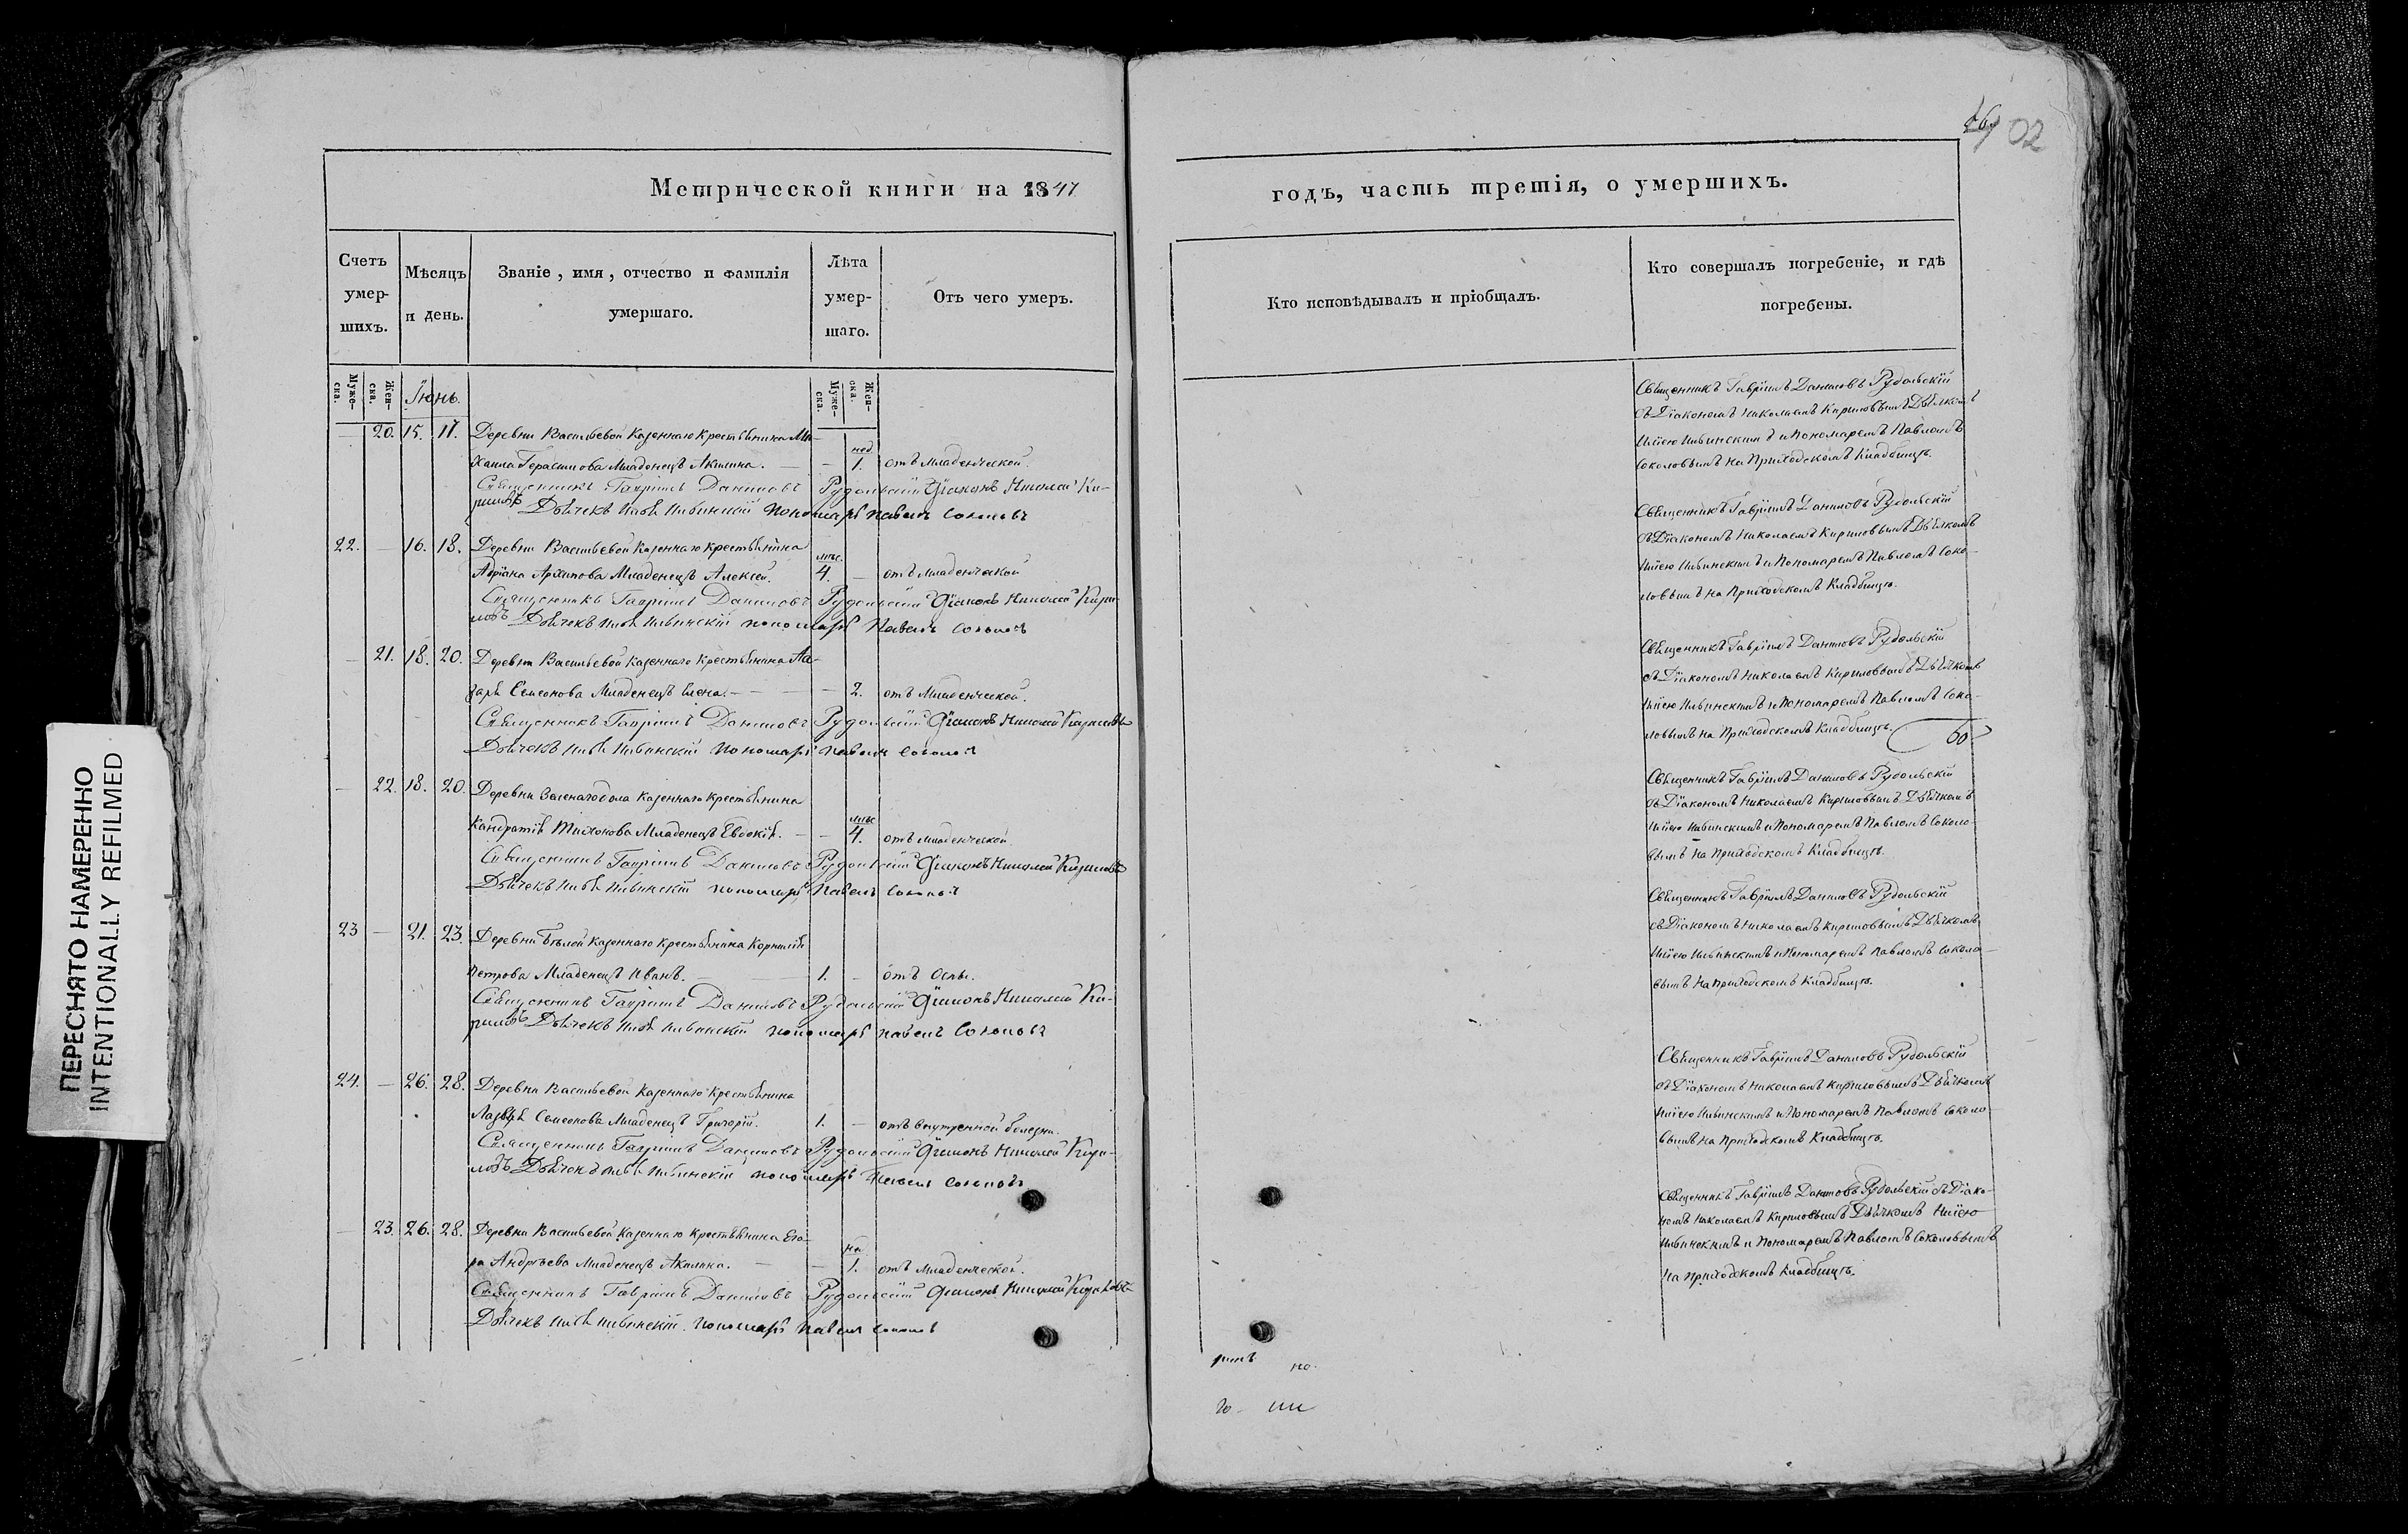 02
Метрической книги на 1847
годъ, часть третія, о умершихъ.
Счетъ умер-шихъ.
Мѣсяцъ и день.
Званіе, имя, отчество и фамилія умершаго.
Лѣта умер-шаго.
Отъ чего умеръ.
Кто исповѣдывалъ и пріобщалъ.
Кто совершалъ погребеніе, и гдѣ погребены.
Муже-ска.
Жен-ска.
Іюнь.
Муже-ска.
Жен-ска.
— 20. 15. 17. Деревни Васильевой казеннаго крестьянина Ми-
хаила Герасимова Младенецъ Акилина. — — нед 1. отъ младенческой.
Священникъ Гавріилъ Даниловъ Рудольскій Діаконъ Николай Ки-
риловъ Дьячекъ Илья Ильинскій пономарь Павелъ Соколовъ
Священникъ Гавріилъ Даниловъ Рудольскій
съ Діакономъ Николаемъ Кириловымъ Дьячкомъ
Ильею Ильинскимъ и Пономаремъ Павломъ
Соколовымъ на Приходскомъ Кладбищѣ.
22. — 16. 18. Деревни Васильевой казеннаго крестьянина
Архипова Младенецъ Алексей. мѣс. 4. — отъ младенческой
Священникъ Гавріилъ Даниловъ Рудольскій Діаконъ Николай Кири-
ловъ Дьячекъ Илья Ильинскій пономарь Павелъ Соколовъ
Священникъ Гавріилъ Даниловъ Рудольскій
съ Діакономъ Николаемъ Кириловымъ Дьячкомъ
Ильею Ильинскимъ и Пономаремъ Павломъ Соко-
ловымъ на Приходскомъ Кладбищѣ.
— 21. 18. 20. Деревни Васильевой казеннаго крестьянина Ла-
заря Семеонова Младенецъ Елена. — — — 2. отъ Младенческой.
Священникъ Гавріилъ Даниловъ Рудольскій Діаконъ Николай Кириловъ
Дьячекъ Илья Ильинскій пономарь Павелъ Соколовъ
Священникъ Гавріилъ Даниловъ Рудольскій
съ Діакономъ Николаемъ Кириловымъ Дьячкомъ
Ильею Ильинскимъ и Пономаремъ Павломъ Соко-
ловымъ на Приходскомъ Кладбищѣ.
— 22. 18. 20. Деревни Зеленагодола казеннаго крестьянина
Кандратія Тихонова Младенецъ Евдокія. — — мѣс 4. отъ младенческой.
Священникъ Гавріилъ Даниловъ Рудольскій Діаконъ Николай Кириловъ
Дьячекъ Илья Ильинскій пономарь Павелъ Соколовъ
Священникъ Гавріилъ Даниловъ Рудольскій
съ Діакономъ Николаемъ Кириловымъ Дьячкомъ
Ильею Ильинскимъ и Пономаремъ Павломъ Соколо-
вымъ на Приходскомъ Кладбищѣ.
23 — 21. 23. Деревни Бѣлой казеннаго крестьянина Корнилія
Петрова Младенецъ Иванъ. — 1. — отъ Оспы.
Священникъ Гавріилъ Даниловъ Рудольскій Діаконъ Николай Ки-
риловъ Дьячекъ Илья Ильинскій пономарь Павелъ Соколовъ
Священникъ Гавріилъ Даниловъ Рудольскій
съ Діакономъ Николаемъ Кириловымъ Дьячкомъ
Ильею Ильинскимъ и Пономаремъ Павломъ Соколо-
вымъ на Приходскомъ Кладбищѣ.
24. — 26. 28. Деревни Васильевой казеннаго крестьянина
Лазаря Семеонова Младенецъ Григорій. 1. — отъ внутренной болезни.
Священникъ Гавріилъ Даниловъ Рудольскій Діаконъ Николай Кири-
ловъ Дьячекъ Илья Ильинскій пономарь Павелъ Соколовъ
Священникъ Гавріилъ Даниловъ Рудольскій
съ Діакономъ Николаемъ Кириловымъ Дьячкомъ
Ильею Ильинскимъ и Пономаремъ Павломъ Соколо-
вымъ на Приходскомъ Кладбищѣ.
— 23. 26. 28. Деревни Васильевой казеннаго крестьянина Его-
ра Андрѣева Младенецъ Акилина. — — 1. отъ Младенческой.
Священникъ Гавріилъ Даниловъ Рудольскій Діаконъ Николай Кириловъ
Дьячекъ Илья Ильинскій. пономарь Павелъ Соколовъ
Священникъ Гавріилъ Даниловъ Рудольскій съ Діако-
номъ Николаемъ Кириловымъ Дьячкомъ Ильею
Ильинскимъ и Пономаремъ Павломъ Соколовымъ
на Приходскомъ Кладбищѣ.
ПЕРЕСНЯТО НАМЕРЕННО
INTENTIONALLY REFILMED